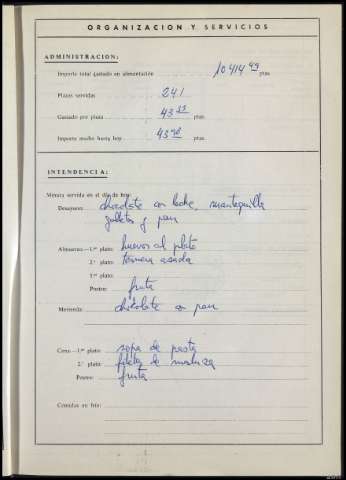 ORGANIZACION Y SERVICIOS
ADMINISTRACION:
Importe total gastado en alimentación 10414 99 ptas.
Plazas servidas 241
Gastado por plaza 43 ptas.
Importe medio hasta hoy 43 ptas.
INTENDENCIA:
Minuta servida en el día de hoy:
Desayuno: chocolate con leche, mantequilla
galletas y pan
Almuerzo.—1.er plato: huevos al plato
2.º plato: ternera asada
3.er plato:
Postre: fruta
Merienda: chocolate con pan
Cena.—1.er plato: sopa de pasta
2.º plato: filetes de merluza
Postre: fruta
Comidas en frío: